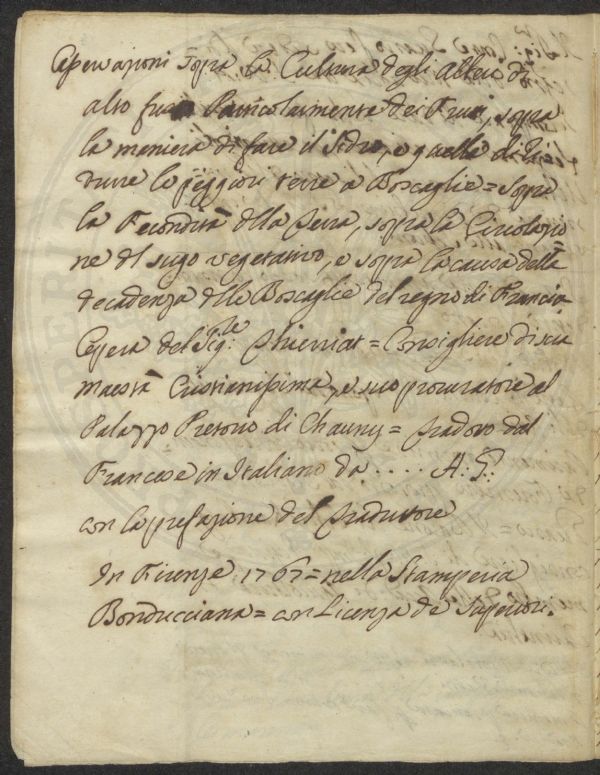 Osservazioni sopra la Cultura degli Alberi di
alto fusto Particolarmente dei Frutti, sopra
la maniera di fare il Sidro, e quella di Ri=
durre le peggiori terre a Boscaglie = Sopra
la Fecondità della Terra, sopra la Circolazio=
ne del sugo vegetativo, e sopra la causa della
decadenza delle Boscaglie del regno di Francia
Opera del Sig:re Thierriat = Consigliere di sua
maestà Cristianissima, e suo procuratore al
Palazzo Pretorio di Chauny = tradotto dal
Francese in Italiano da .... A: G:
con la prefazione del traduttore
In Firenze 1767 = nella Stamperia
Bonducciana = con Licenza de Superiori.